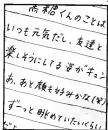 高橋くんのことは
いつも元気だし、友達と
楽しそうにしてる姿がキュン
あ、あと顔も好みかな(笑)
ずーっと眺めていたいくらい